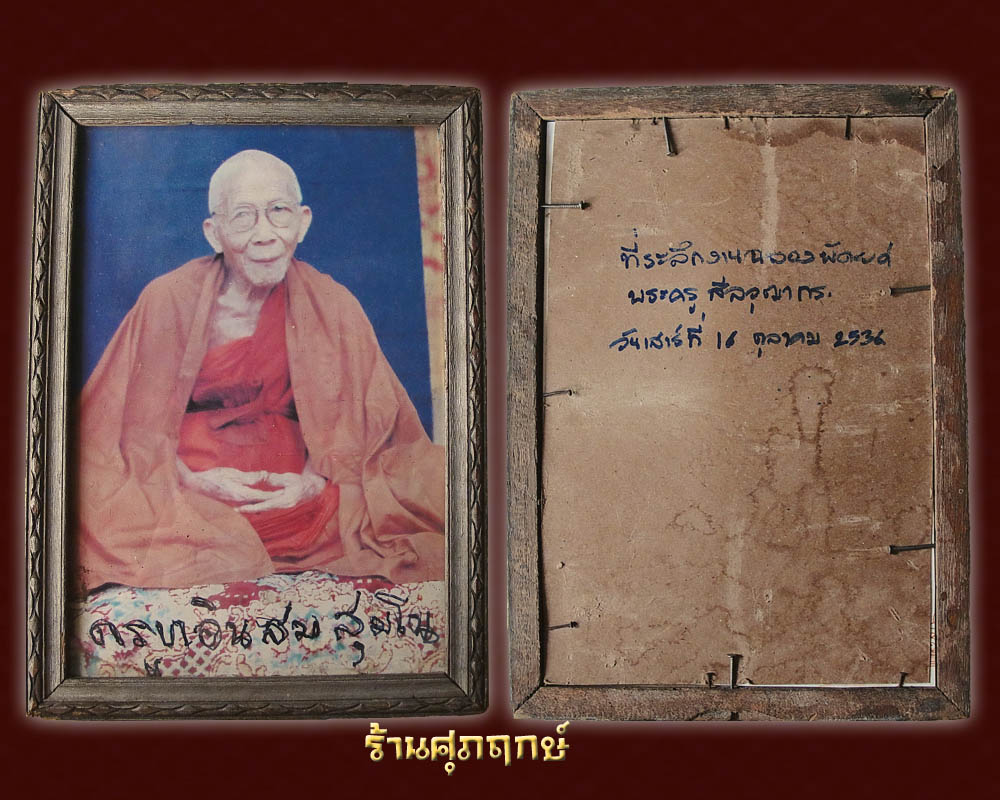 ครูบาอินสม สุมโน
ที่ระลึกงานฉลองพัดยศ
พระครู สีลวุฒากร.
วันเสาร์ที่ 16 ตุลาคม 2536
ร้านศุภฤกษ์